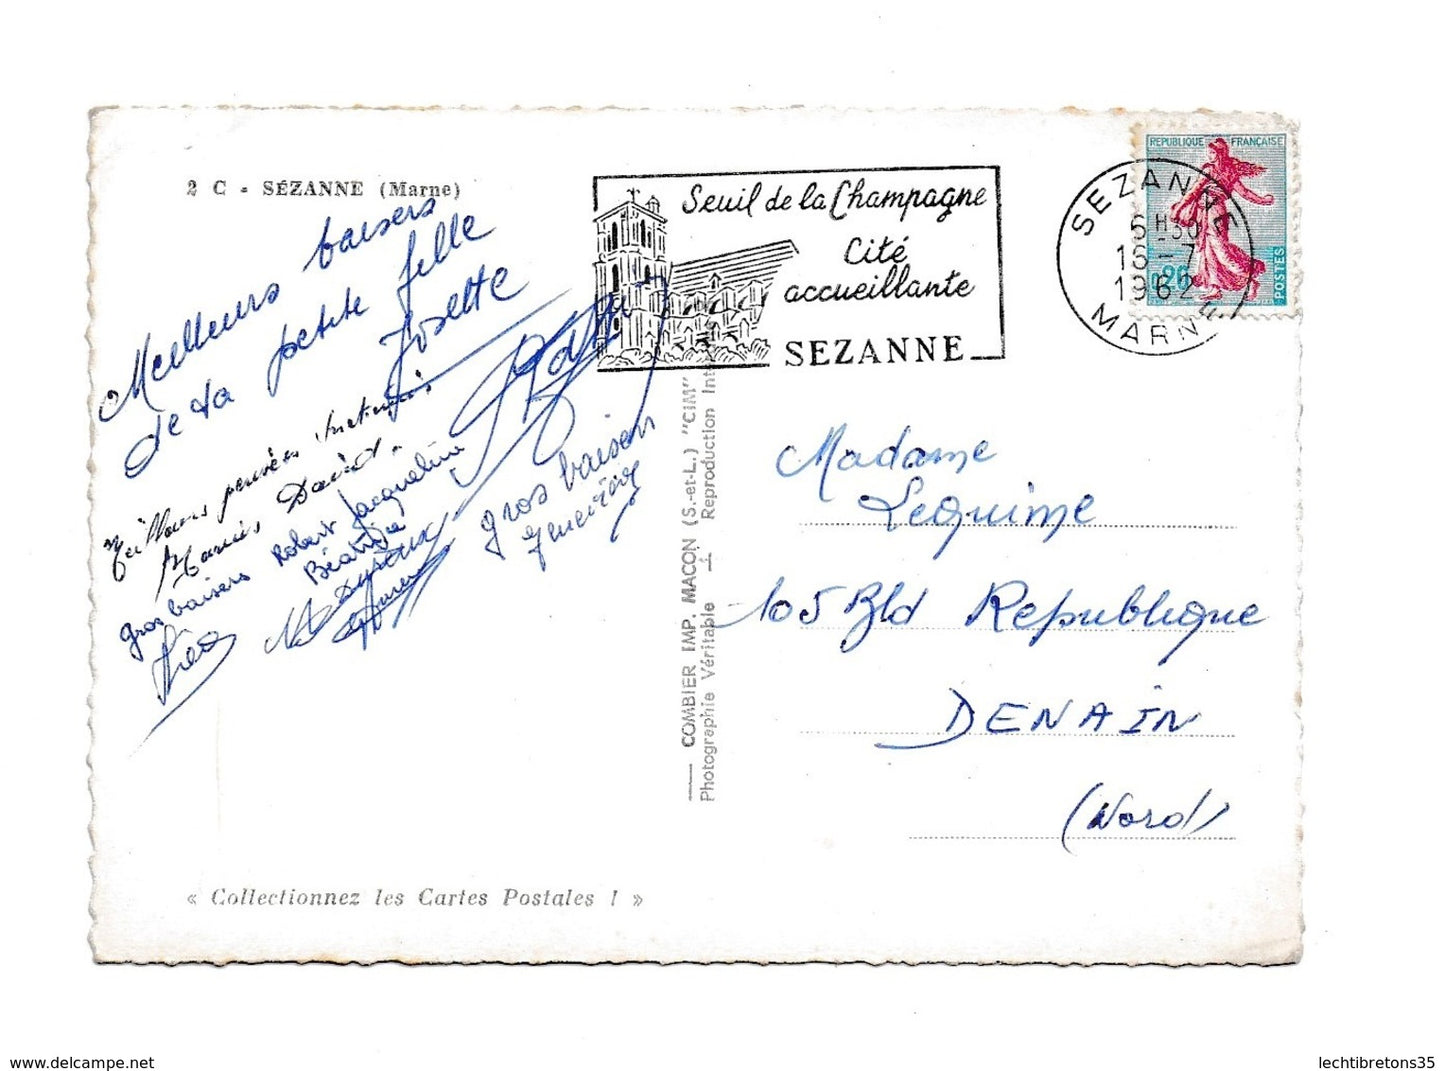 2 C - SÉZANNE (Marne)
Meilleurs baisers
de la petite fille
Josette
Meilleures pensées
David.
gros baisers Robert Jacqueline
Béatrice
gros baisers
Geneviève
Seuil de la Champagne
Cité
accueillante
SEZANNE
REPUBLIQUE FRANÇAISE
POSTES
0,20
SEZANNE
16-7
1962
MARNE
Madame
Lequime
105 Bld Republique
DENAIN
(Nord)
COMBIER IMP. MACON (S.-et-L.) "CIM"
Photographie Véritable - Reproduction
« Collectionnez les Cartes Postales ! »
delcampe.net
lechtibretons35